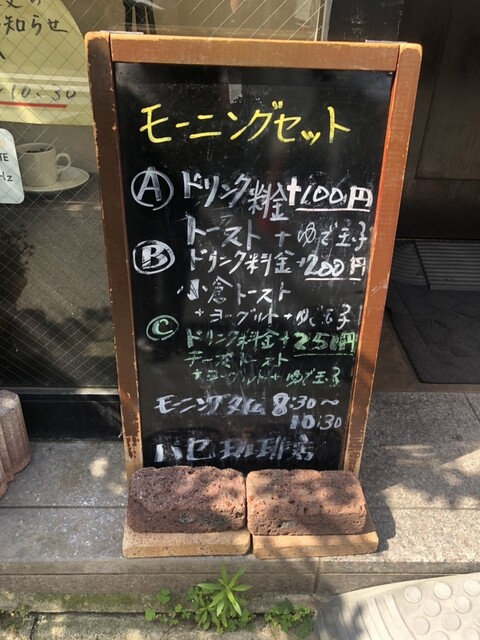 お知らせ
10:30
モーニングセット
Ⓐ ドリンク料金+100円
トースト+ゆで玉子
Ⓑ ドリンク料金+200円
小倉トースト
+ヨーグルト+ゆで玉子
Ⓒ ドリンク料金+250円
チーズトースト
+ヨーグルト+ゆで玉子
モーニングタイム 8:30〜
10:30
ハセ珈琲店